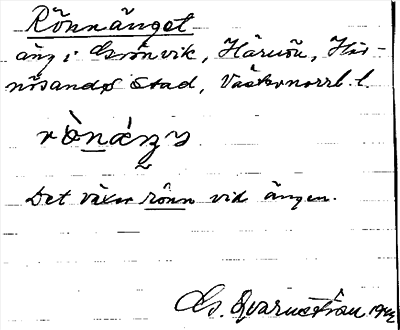 Rönnänget
äng i Grönvik, Härnön, Här-
nösands Stad, Västernorrl. l.
Det växer rönn vid ängen.
G. Qvarnström 1942